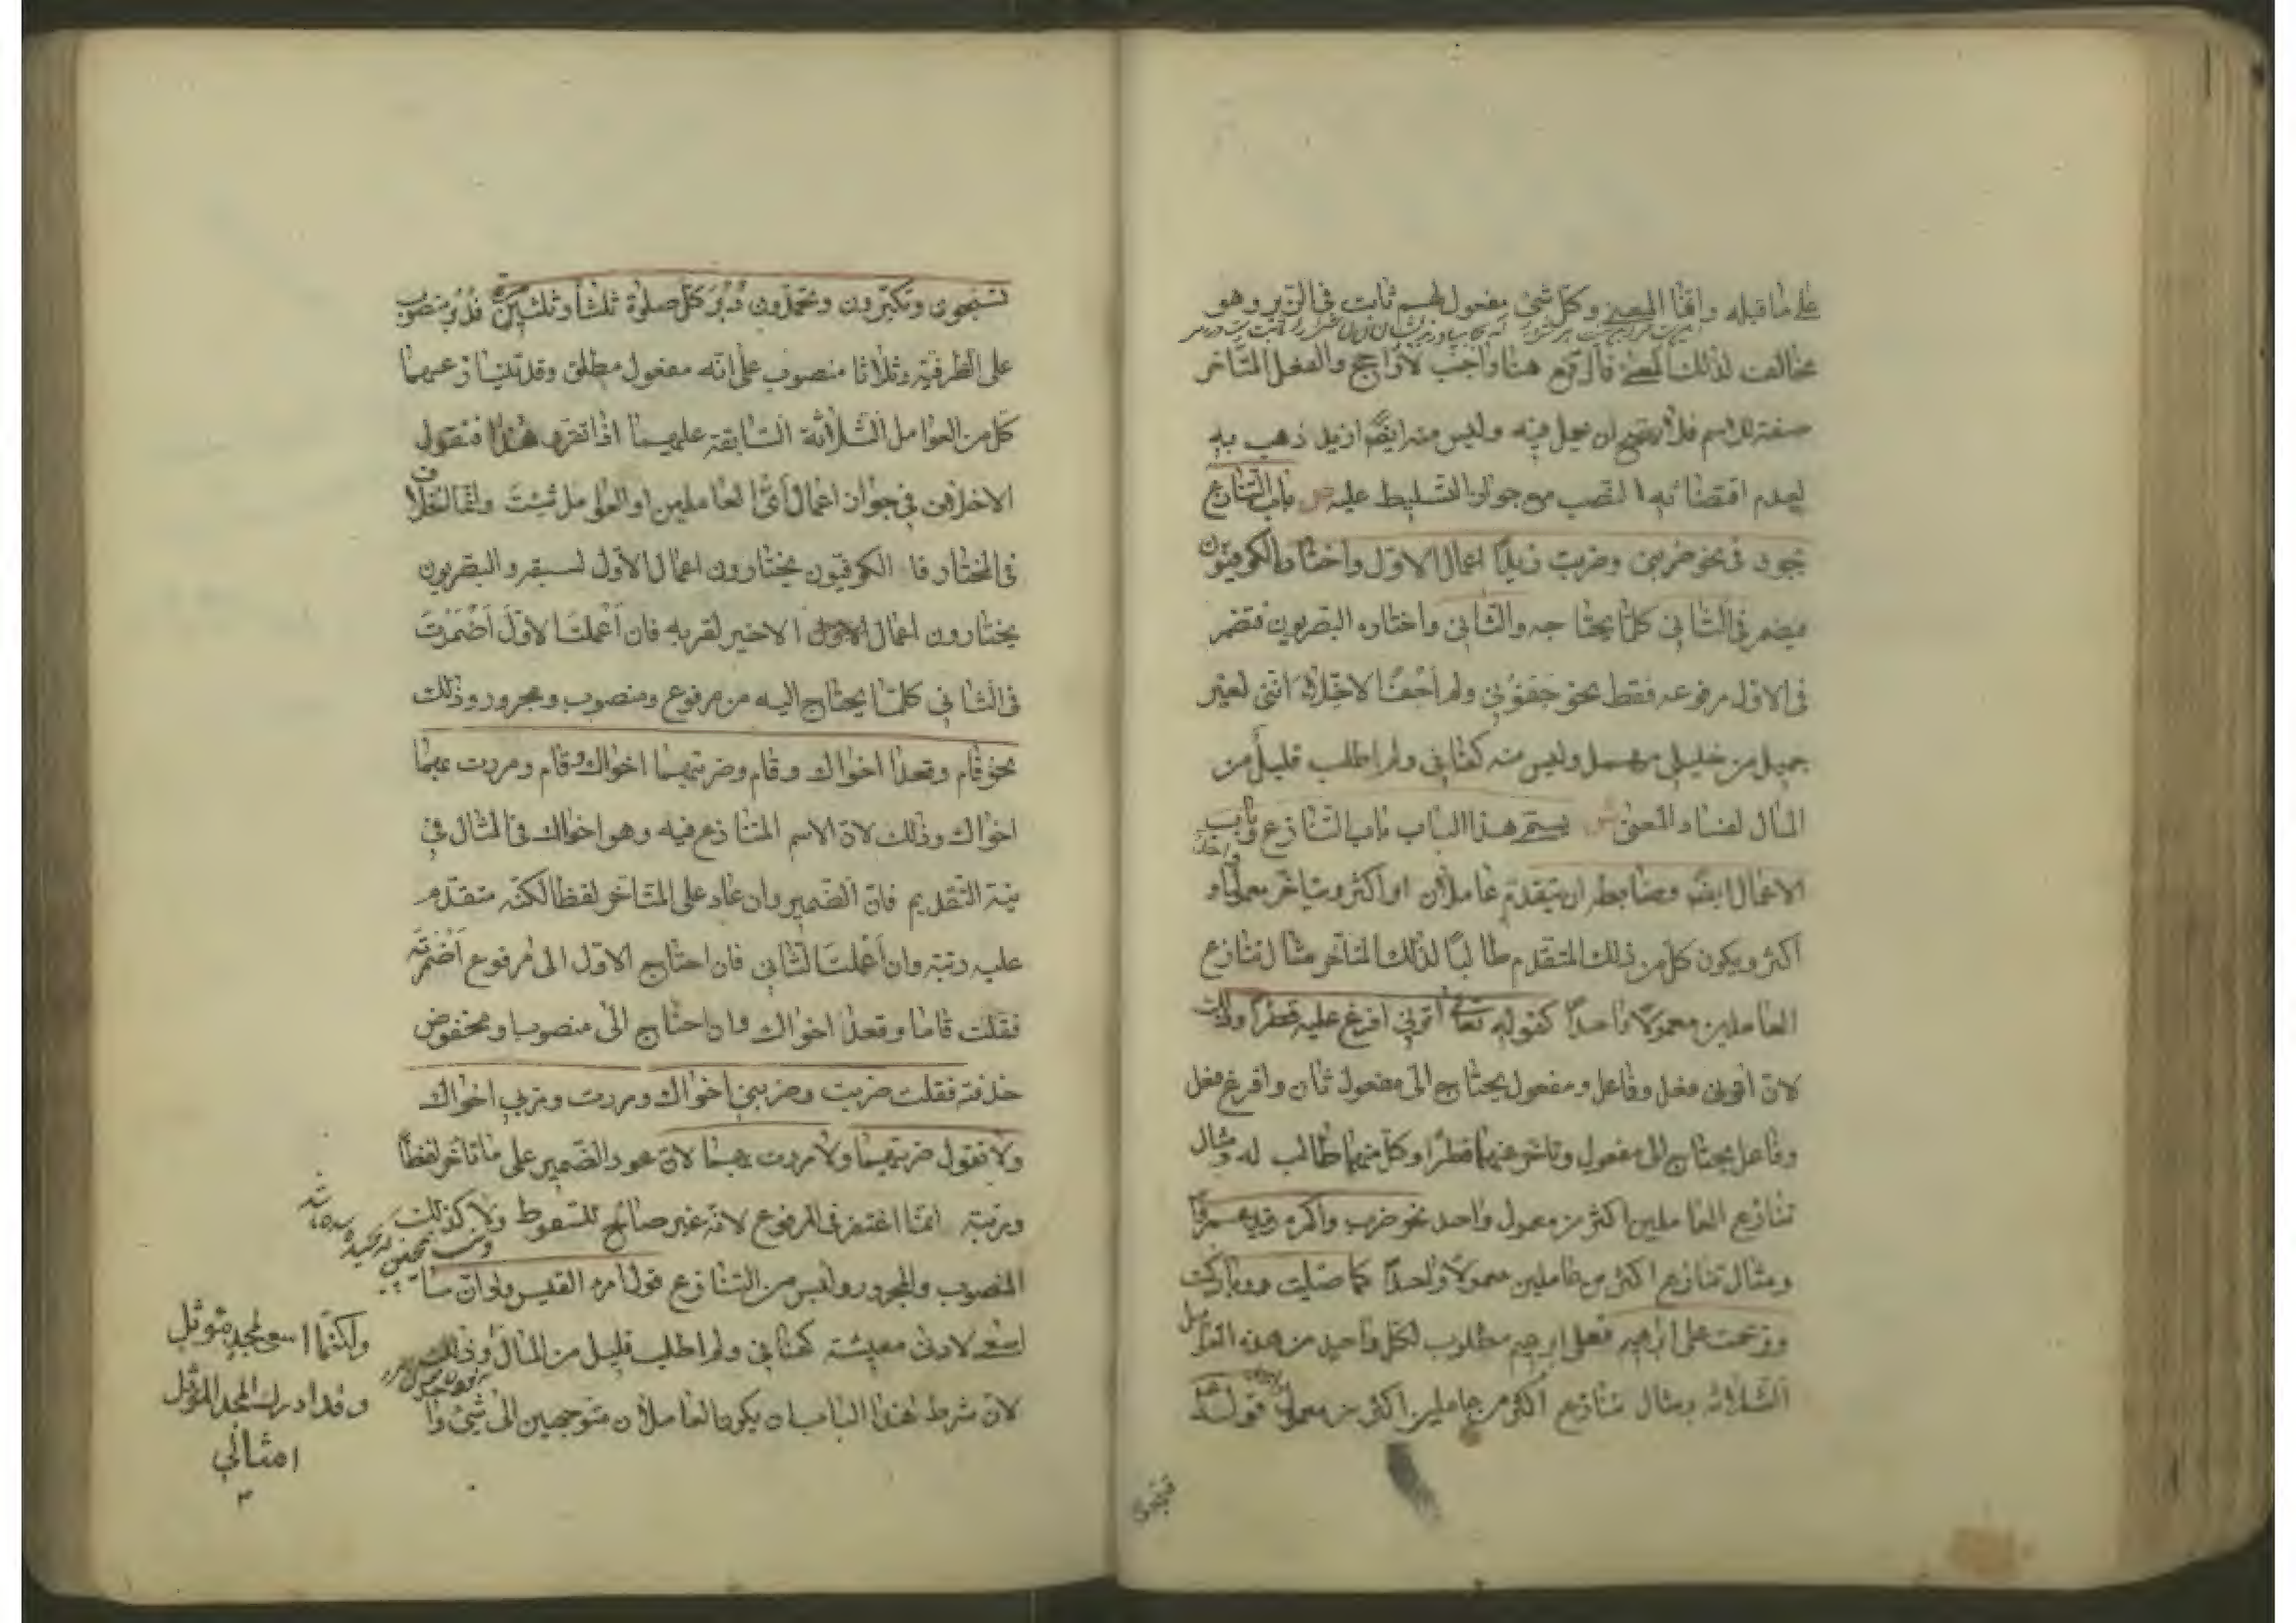 على ما قبله وانما المعنى وكل شئ مفعول لهم ثابت فى الزبر وهو
مخالف لذلك المعنى فالرفع هنا واجب لا راجح والفعل المتاخر
صفة للاسم فلا يصح ان يعمل فيه وليس منه ايضا ازيد ذهب به
لعدم اقتضائه النصب مع جواز التسليط عليه ص باب التنازع
يجوز فى نحو ضربنى وضربت زيدا اعمال الاول واختاره الكوفيون
فيضمر فى الثانى كل ما يحتاجه والثانى واختاره البصريون فتضمر
فى الاول مرفوعه فقط نحو جفونى ولم اجف الاخلاء اننى لغير
جميل من خليلى مهمل وليس منه كفانى ولم اطلب قليل من
المال لفساد المعنى ش يسمى هذا الباب باب التنازع وباب
الاعمال ايضا وضابطه ان يتقدم عاملان او اكثر ويتاخر معمول او
اكثر ويكون كل من ذلك المتقدم طالبا لذلك المتاخر مثال تنازع
العاملين معمولا واحدا كقوله تعالى اتونى افرغ عليه قطرا وذلك
لان اتونى فعل وفاعل ومفعول يحتاج الى مفعول ثان وافرغ فعل
وفاعل يحتاج الى مفعول وتاخر عنهما قطرا وكل منهما طالب له ومثال
تنازع العاملين اكثر من معمول واحد نحو ضرب واكرم زيد عمرا
ومثال تنازع اكثر من عاملين معمولا واحدا كما صليت وباركت
وترحمت على ابرهيم فعلى ابرهيم مطلوب لكل واحد من هذه العوامل
الثلاثة ومثال تنازع اكثر من عاملين اكثر من معمول قوله
تسبحون وتكبرون وتحمدون دبر كل صلوة ثلثا وثلثين فدبر منصوب
على الظرفية وثلاثا منصوب على انه مفعول مطلق وقد تنازعهما
كل من العوامل الثلاثة السابقة عليهما اذا تقرر هذا فنقول
لاخلاف فى جواز اعمال اى العاملين او العوامل شئت وانما الخلاف
فى المختار فالكوفيون يختارون اعمال الاول لسبقه والبصريون
يختارون اعمال الاخير لقربه فان اعملت الاول اضمرت
فى الثانى كلما يحتاج اليه من مرفوع ومنصوب ومجرور وذلك
نحو قام وقعدا اخواك وقام وضربتهما اخواك وقام ومررت بهما
اخواك وذلك لان الاسم المتنازع فيه وهو اخواك فى المثال فى
نية التقديم فان الضمير وان عاد على المتاخر لفظا لكنه متقدم
عليه رتبة وان اعملت الثانى فان احتاج الاول الى مرفوع اضمرته
فقلت قاما وقعدا اخواك وان احتاج الى منصوب او مخفوض
حذفته فقلت ضربت وضربنى اخواك ومررت ومر بى اخواك
ولا تقول ضربتهما ولا مررت بهما لان عود الضمير على ما تاخر لفظا
ورتبة انما اغتفر فى المرفوع لانه غير صالح للسقوط ولا كذلك
المنصوب والمجرور وليس من التنازع قول امرء القيس ولو ان ما
اسعى لادنى معيشة كفانى ولم اطلب قليل من المال وذلك
لان شرط هذا الباب ان يكون العاملان متوجهين الى شئ وا
ولكنما اسعى لمجد مؤثل
وقد ادرك المجد المؤثل
امثالى